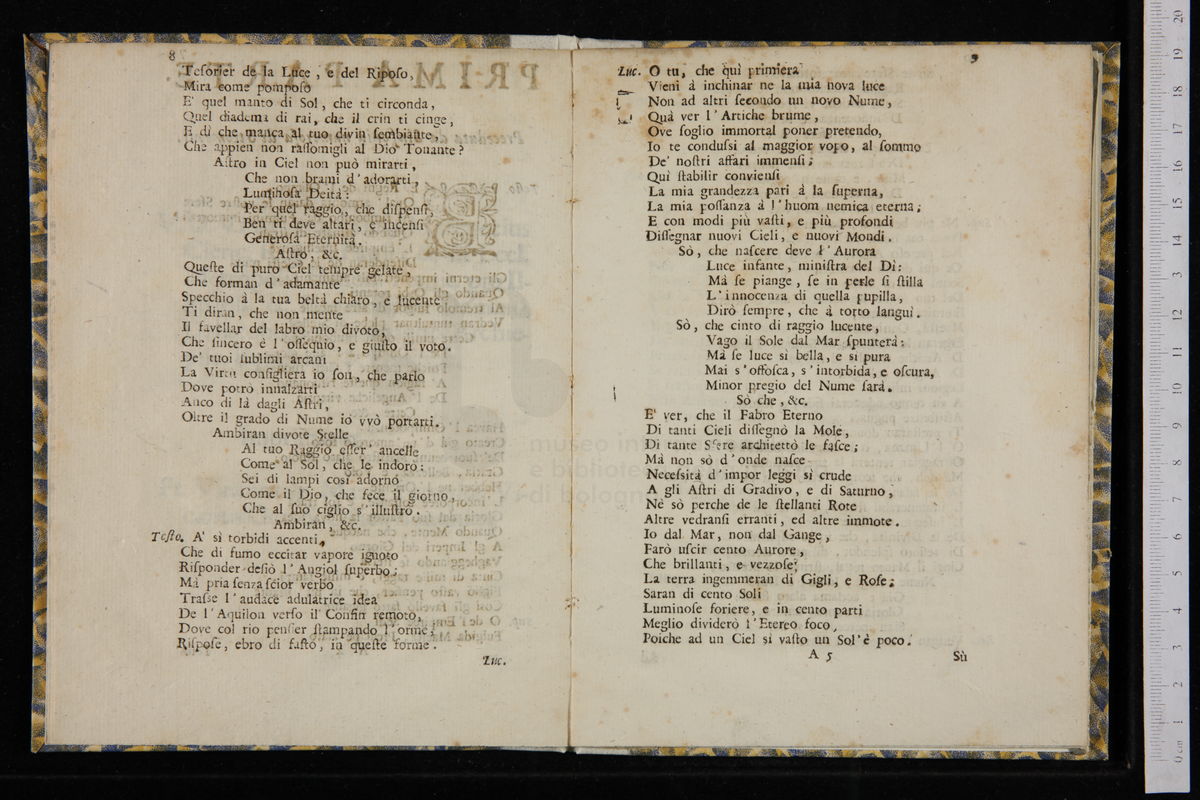 8
Teſorier de la Luce, e del Ripoſo,
Mira come pompoſo
E' quel manto di Sol, che ti circonda,
Quel diadema di rai, che il crin ti cinge,
E di che manca al tuo divin ſembiante,
Che appien non raſſomigli al Dio Tonante?
Aſtro in Ciel non può mirarti,
Che non brami d'adorarti,
Luminoſa Deità:
Per quel raggio, che diſpenſi,
Ben ti deve altari, e incenſi
Generoſa Eternità.
Aſtro, &c.
Queſte di puro Ciel tempre gelate,
Che forman d'adamante
Specchio à la tua beltà chiaro, e lucente
Ti diran, che non mente
Il favellar del labro mio divoto,
Che ſincero è l'oſſequio, e giuſto il voto.
De' tuoi ſublimi arcani
La Virtù conſigliera io ſon, che parlo
Dove potrò innalzarti
Anco di là dagli Aſtri,
Oltre il grado di Nume io vvò portarti.
Ambiran divote Stelle
Al tuo Raggio eſſer ancelle
Come al Sol, che le indorò:
Sei di lampi così adorno
Come il Dio, che fece il giorno,
Che al ſuo ciglio s'illuſtrò.
Ambiran, &c.
Teſto. A' sì torbidi accenti,
Che di fumo eccitar vapore ignoto
Riſponder deſiò l'Angiol ſuperbo;
Mà pria ſenza ſcior verbo
Traſse l'audace adulatrice idea
De l'Aquilon verſo il Confin remoto,
Dove col rio penſier ſtampando l'orme,
Riſpoſe, ebro di faſto, in queſte forme.
Luc.
9
Luc. O tu, che quì primiera
Vieni à inchinar ne la mia nova luce
Non ad altri ſecondo un novo Nume,
Quà ver l'Artiche brume,
Ove ſoglio immortal poner pretendo,
Io te conduſsi al maggior vopo, al ſommo
De' noſtri affari immenſi;
Quì ſtabilir convienſi
La mia grandezza pari à la ſuperna,
La mia poſſanza à l'huom nemica eterna;
E con modi più vaſti, e più profondi
Diſſegnar nuovi Cieli, e nuovi Mondi.
Sò, che naſcere deve l'Aurora
Luce infante, miniſtra del Dì:
Mà ſe piange, ſe in perle ſi ſtilla
L'innocenza di quella pupilla,
Dirò ſempre, che à torto languì.
Sò, che cinto di raggio lucente,
Vago il Sole dal Mar ſpunterà:
Mà ſe luce sì bella, e sì pura
Mai s'offoſca, s'intorbida, e oſcura,
Minor pregio del Nume ſarà.
Sò che, &c.
E' ver, che il Fabro Eterno
Di tanti Cieli diſſegnò la Mole,
Di tante Sfere architettò le faſce;
Mà non sò d'onde naſce
Neceſsità d'impor leggi sì crude
A gli Aſtri di Gradivo, e di Saturno,
Nè sò perche de le ſtellanti Rote
Altre vedranſi erranti, ed altre immote.
Io dal Mar, non dal Gange,
Farò uſcir cento Aurore,
Che brillanti, e vezzoſe;
La terra ingemmeran di Gigli, e Roſe;
Saran di cento Soli
Luminoſe foriere, e in cento parti
Meglio dividerò l'Etereo foco,
Poiche ad un Ciel sì vaſto un Sol'è poco.
A 5
Sù